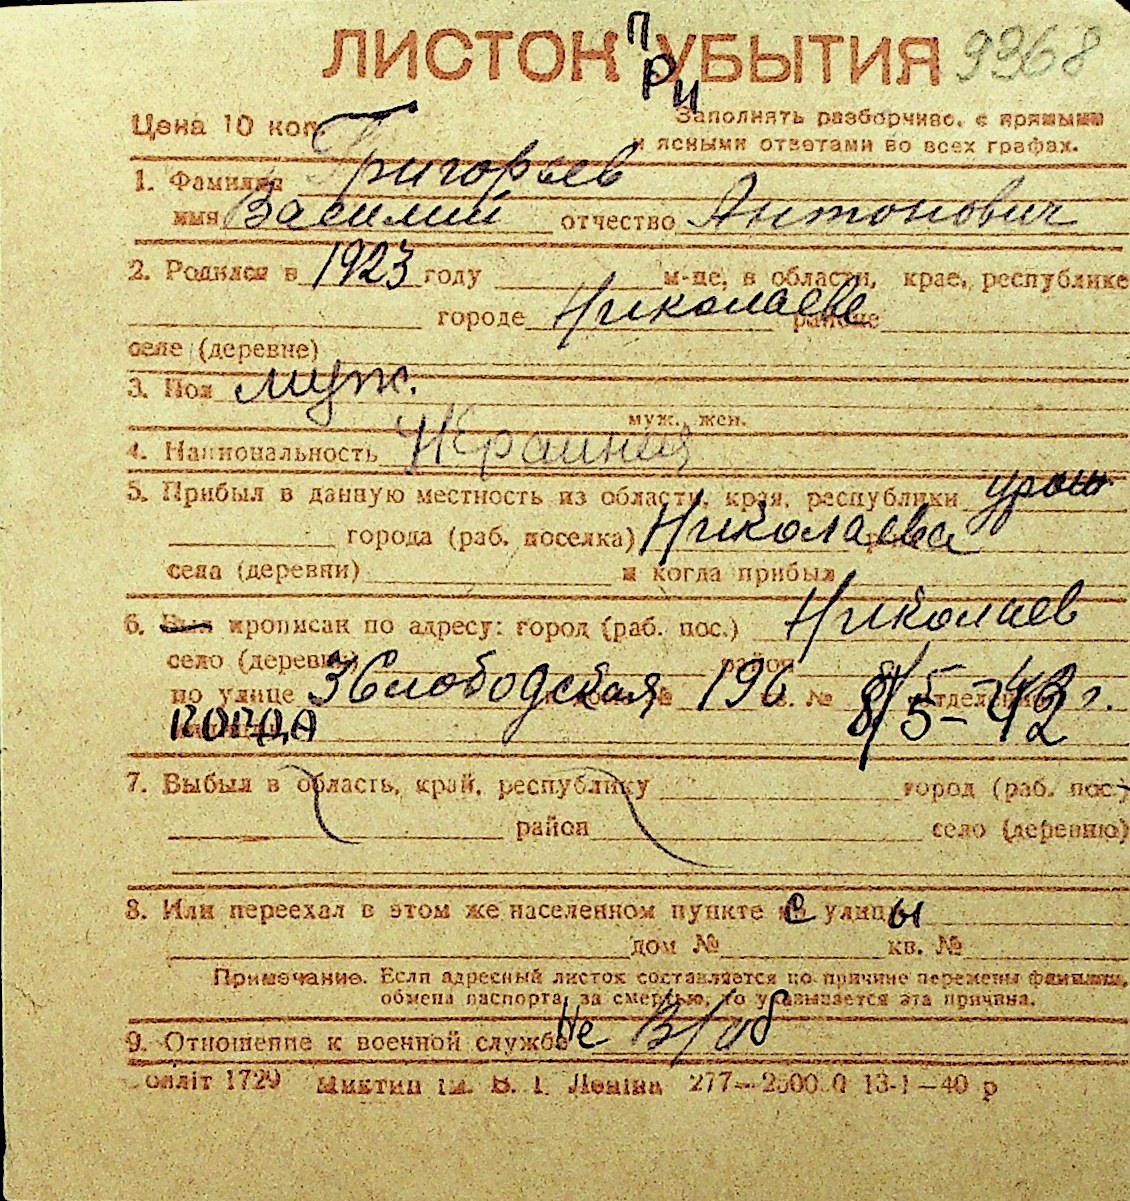 ЛИСТОК ПРИУБЫТИЯ 9368
Цена 10 коп.
Заполнять разборчиво, с прямыми
и ясными ответами во всех графах.
1. Фамилия Григорьев
имя Василий отчество Антонович
2. Родился в 1923 году м-це, в области, крае, республике
городе Николаеве районе
селе (деревне)
3. Пол муж.
муж., жен.
4. Национальность Украинец
5. Прибыл в данную местность из области, края, республики урож
города (раб. поселка) Николаева
села (деревни) и когда прибыл
6. Был прописан по адресу: город (раб. пос.) Николаев
село (деревня) район
по улице 3 Слободская дом № 196 кв. № отделение 8/5-42 г.
КОГДА 8/5-42
7. Выбыл в область, край, республику город (раб. пос.)
район село (деревню)
8. Или переехал в этом же населенном пункте с улицы
дом № кв. №
Примечание. Если адресный листок составляется по причине перемены фамилии,
обмена паспорта, за смертью, то указывается эта причина.
9. Отношение к военной службе не в/об
олліт 1729 ім. В. І. Леніна 277—2500.0 13-1—40 р